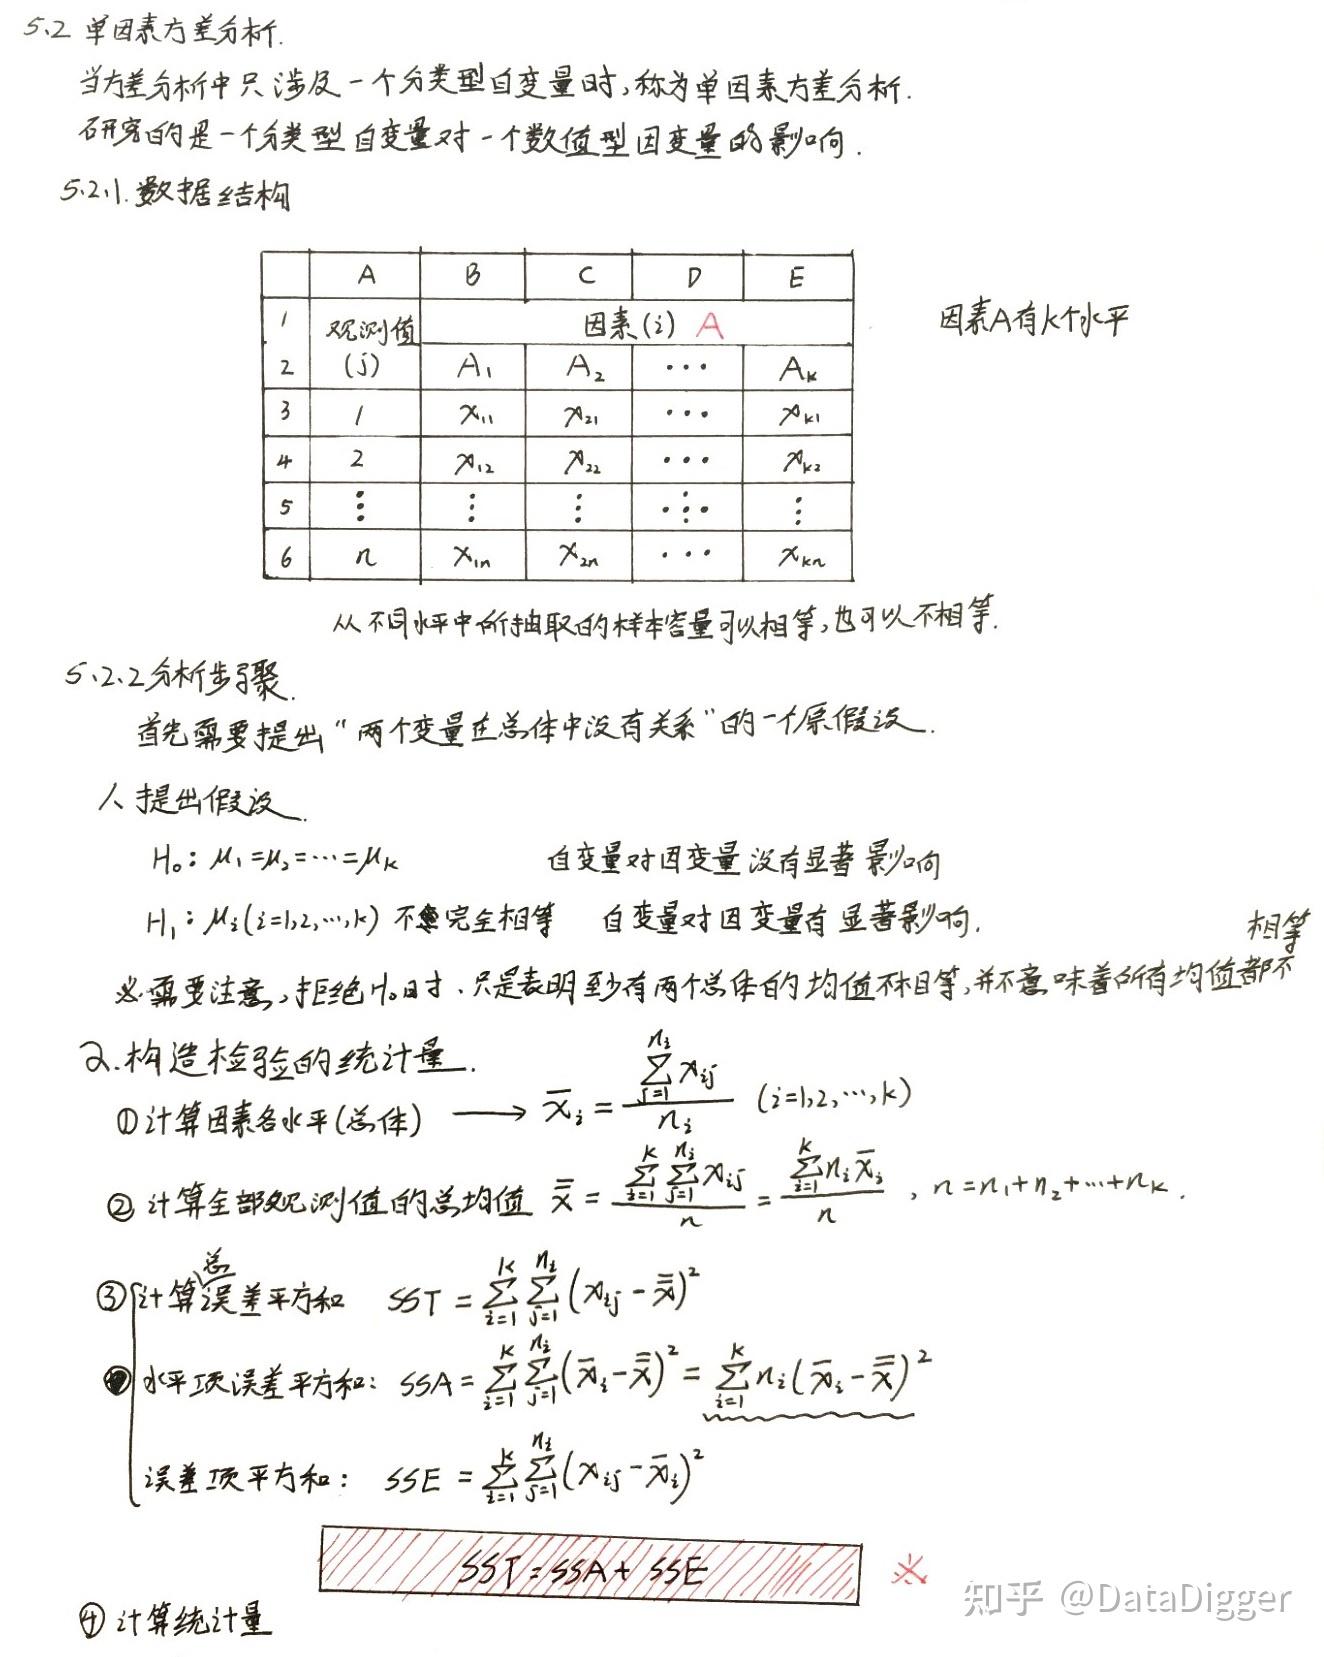 5.2 单因素方差分析.
当方差分析中只涉及一个分类型自变量时,称为单因素方差分析.
研究的是一个分类型自变量对一个数值型因变量的影响.
5.2.1. 数据结构
A B C D E
1 观测值 因素(i) A
2 (j) A₁ A₂ ··· Aₖ
3 1 x₁₁ x₂₁ ··· xₖ₁
4 2 x₁₂ x₂₂ ··· xₖ₂
5 ⋮ ⋮ ⋮ ⋮ ⋮
6 n x₁ₙ x₂ₙ ··· xₖₙ
因素A有k个水平
从不同水平中所抽取的样本容量可以相等,也可以不相等.
5.2.2 分析步骤.
首先需要提出“两个变量在总体中没有关系”的一个原假设.
1、提出假设.
H₀: μ₁=μ₂=···=μₖ 自变量对因变量没有显著影响
H₁: μᵢ(i=1,2,···,k) 不完全相等 自变量对因变量有显著影响.
※需要注意,拒绝H₀时,只是表明至少有两个总体的均值不相等,并不意味着所有均值都不相等
2.构造检验的统计量.
①计算因素各水平(总体) → x̄ᵢ = ∑ⱼ₌₁^{nᵢ} xᵢⱼ / nᵢ (i=1,2,···,k)
②计算全部观测值的总均值 x̿ = ∑ᵢ₌₁^{k} ∑ⱼ₌₁^{nᵢ} xᵢⱼ / n = ∑ᵢ₌₁^{k} nᵢ x̄ᵢ / n , n=n₁+n₂+···+nₖ.
③计算总误差平方和 SST = ∑ᵢ₌₁^{k} ∑ⱼ₌₁^{nᵢ} (xᵢⱼ - x̿)²
水平项误差平方和: SSA = ∑ᵢ₌₁^{k} ∑ⱼ₌₁^{nᵢ} (x̄ᵢ - x̿)² = ∑ᵢ₌₁^{k} nᵢ(x̄ᵢ - x̿)²
误差项平方和: SSE = ∑ᵢ₌₁^{k} ∑ⱼ₌₁^{nᵢ} (xᵢⱼ - x̄ᵢ)²
SST = SSA + SSE ※
④计算统计量
知乎 @DataDigger